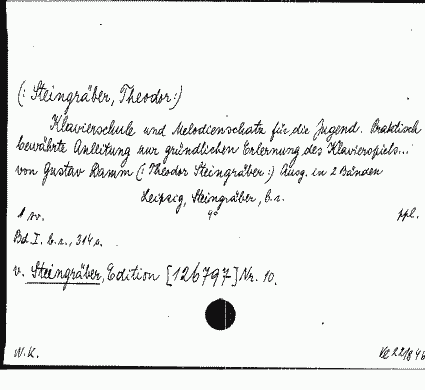 (: Steingräber, Theodor :)
Klavierschule und Melodienschatz für die Jugend. Praktisch
bewährte Anleitung zur gründlichen Erlernung des Klavierspiels...
von Gustav Damm (: Theodor Steingräber :) Ausg. in 2 Bänden
Leipzig, Steingräber, b. r.
4°
1 vv. ppl.
Bd. I. b. r., 314 s.
v. Steingräber, Edition [126797] Nr. 10.
N.K.